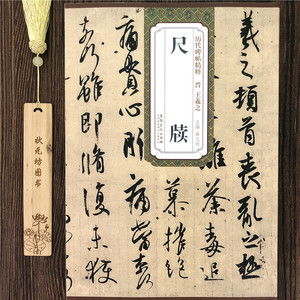 历代碑帖精粹 晋 王羲之
尺牍
羲之頓首喪亂之極
離荼毒追
慕摧絕
痛貫心肝痛當奈
何雖即脩復未獲
状元坊图书